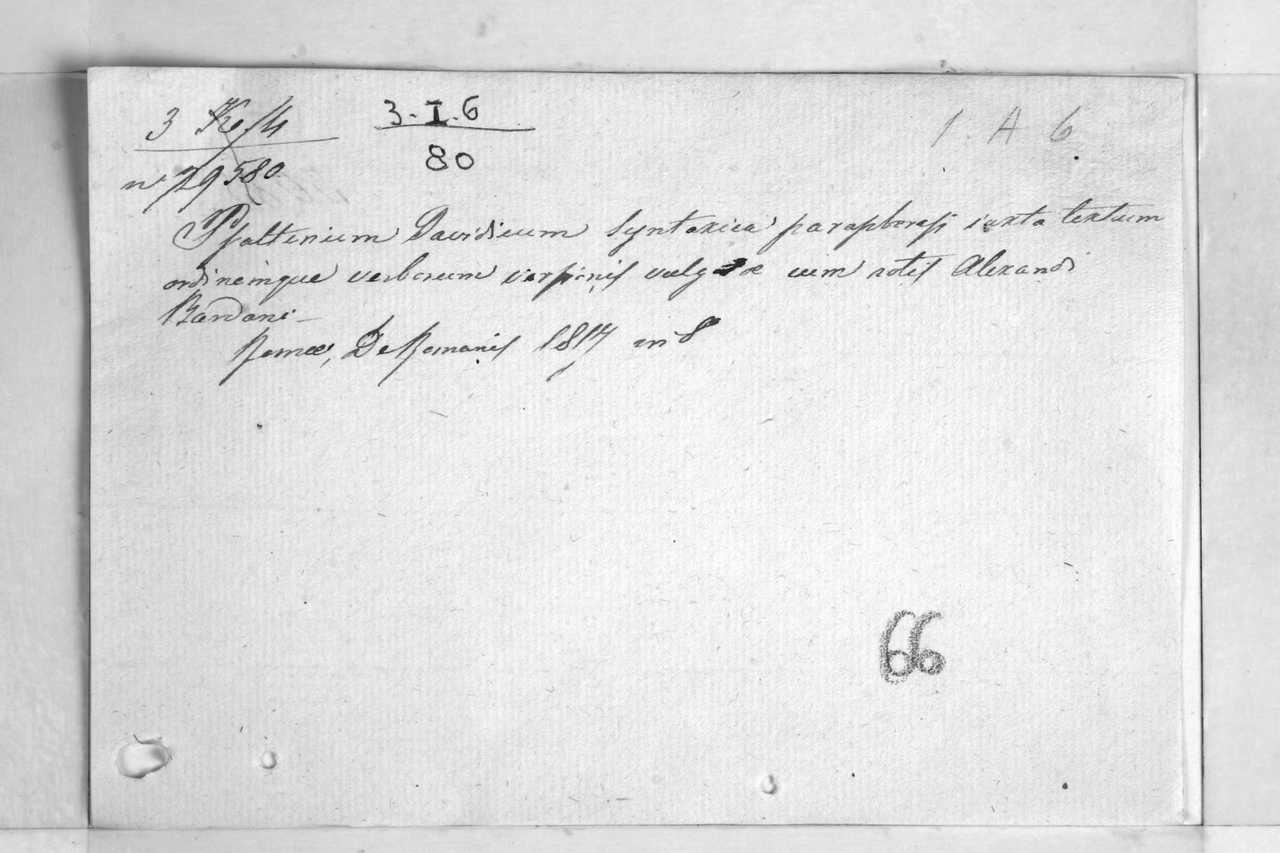 3 K 4
3.I.6
80
1 A 6
580
Psalterium Davidicum Syntaxica paraphrasi iuxta textum
ordinemque verborum versionis vulgatæ cum notis Alexandi
Bandani -
Romæ, De Romanis 1817 in 8
66